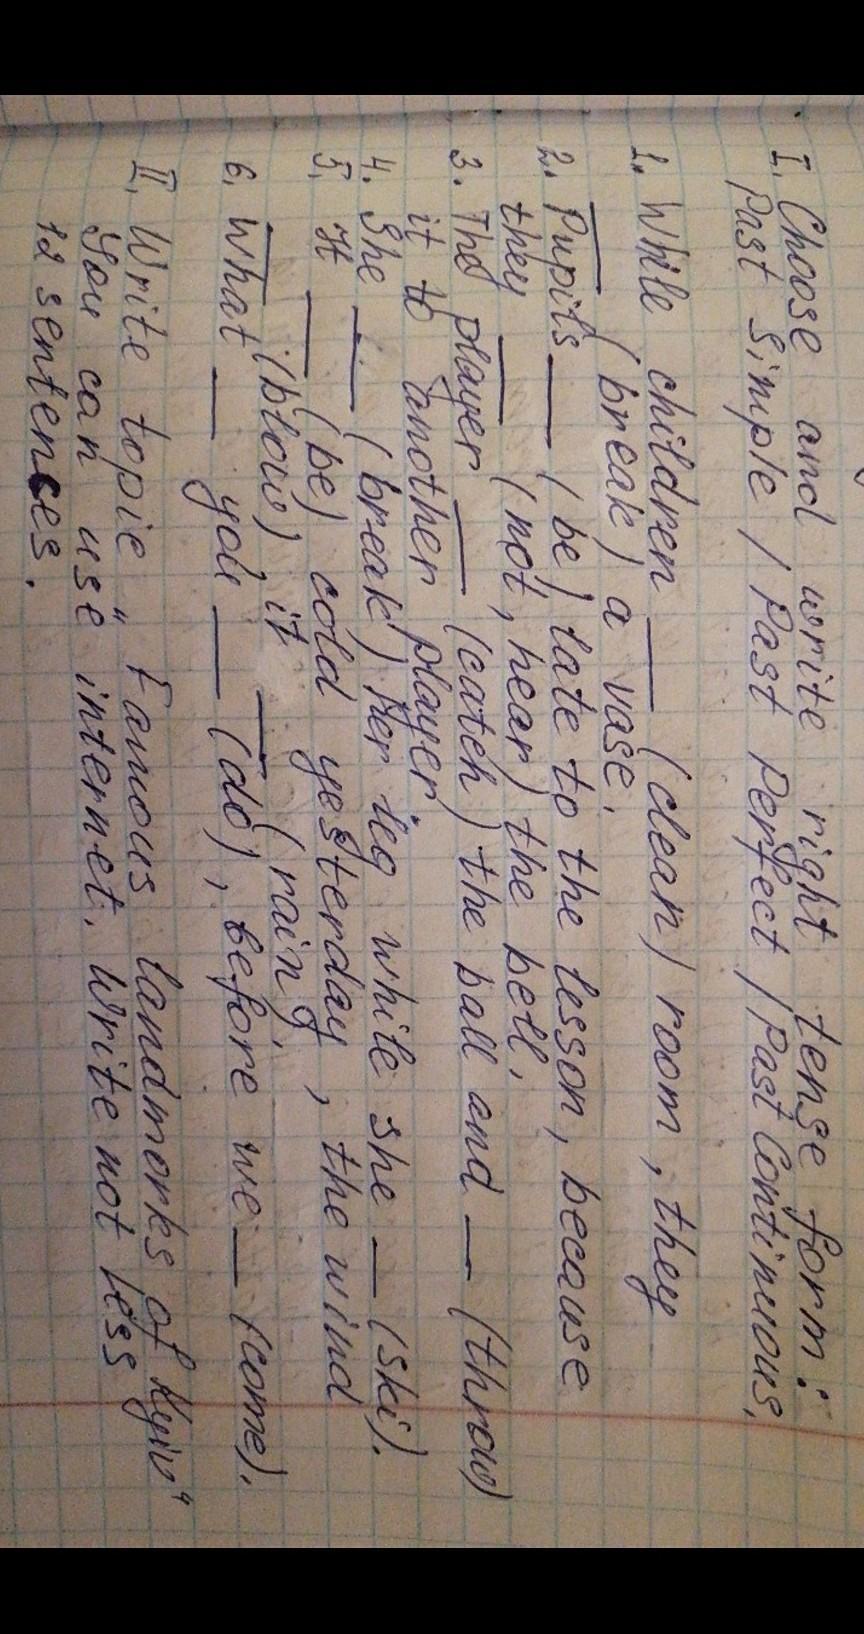 I. Choose and write right tense form:
Past Simple / Past Perfect / Past Continuous.
1. While children ___ (clean) room, they
___ (break) a vase.
2. Pupils ___ (be) late to the lesson, because
they ___ (not, hear) the bell.
3. The player ___ (catch) the ball and ___ (throw)
it to another player.
4. She ___ (break) her leg while she ___ (ski).
5. It ___ (be) cold yesterday, the wind
___ (blow), it ___ (rain).
6. What ___ you ___ (do), before we ___ (come).
II. Write topic "Famous landmorks of Kyiv"
You can use internet. Write not less
12 sentences.